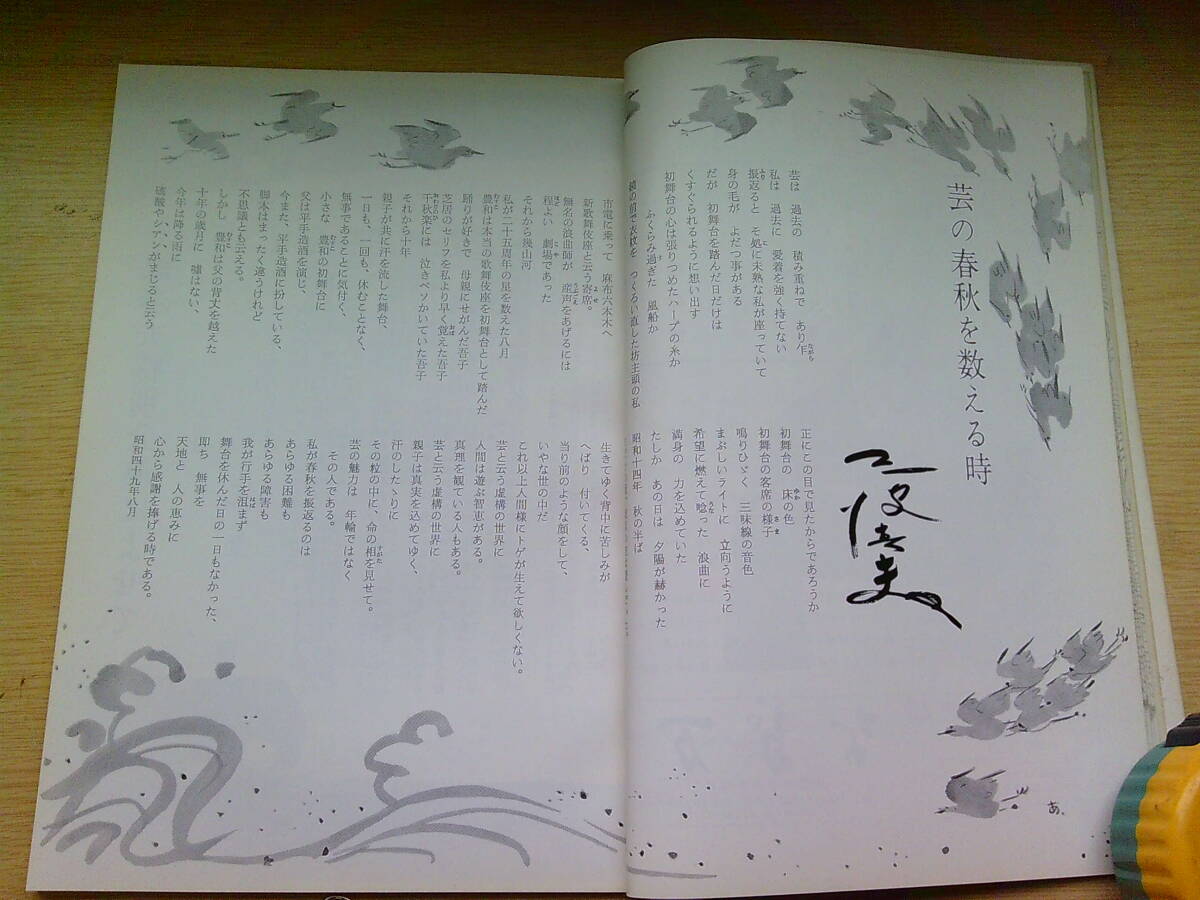 芸の春秋を数える時
三波春夫
芸は 過去の 積み重ねで あり乍ら
私は 過去に 愛着を強く持てない
振返ると そ処に未熟な私が座っていて
身の毛が よだつ事がある
だが 初舞台を踏んだ日だけは
くすぐられるように想い出す
初舞台の心は張りつめたハープの糸か
ふくらみ過ぎた 風船か
鏡の前で衣紋を つくろい直した坊主頭の私
正にこの目で見たからであろうか
初舞台の 床の色
初舞台の客席の様子
鳴りひゞく 三味線の音色
まぶしいライトに 立向うように
希望に燃えて唸った 浪曲に
満身の 力を込めていた
たしか あの日は 夕陽が赫かった
昭和十四年 秋の半ば
市電に乗って 麻布六本木へ
新歌舞伎座と云う寄席。
無名の浪曲師が 産声をあげるには
程よい 劇場であった
それから幾山河
私が二十五周年の星を数えた八月
豊和は本当の歌舞伎座を初舞台として踏んだ
踊りが好きで 母親にせがんだ吾子
芝居のセリフを私より早く覚えた吾子
千秋楽には 泣きベソかいていた吾子
それから十年
親子が共に汗を流した舞台、
一日も、一回も、休むことなく、
無事であることに気付く、
小さな 豊和の初舞台に
父は平手造酒を演じ、
今また、平手造酒に扮している、
脚本はまったく違うけれど
不思議とも云える。
しかし 豊和は父の背丈を越えた
十年の歳月に 嘘はない、
今年は降る雨に
硫酸やシアンがまじると云う
生きてゆく背中に苦しみが
へばり 付いてくる、
当り前のような顔をして、
いやな世の中だ
これ以上人間様にトゲが生えて欲しくない。
芸と云う虚構の世界に
人間は遊ぶ智恵がある。
真理を観ている人もある。
芸と云う虚構の世界に
親子は真実を込めてゆく、
汗のしたゝりに
その粒の中に、命の相を見せて。
芸の魅力は 年輪ではなく
その人である。
私が春秋を振返るのは
あらゆる困難も
あらゆる障害も
我が行手を沮まず
舞台を休んだ日の一日もなかった、
即ち 無事を
天地と 人の恵みに
心から感謝を捧げる時である。
昭和四十九年八月
あ、